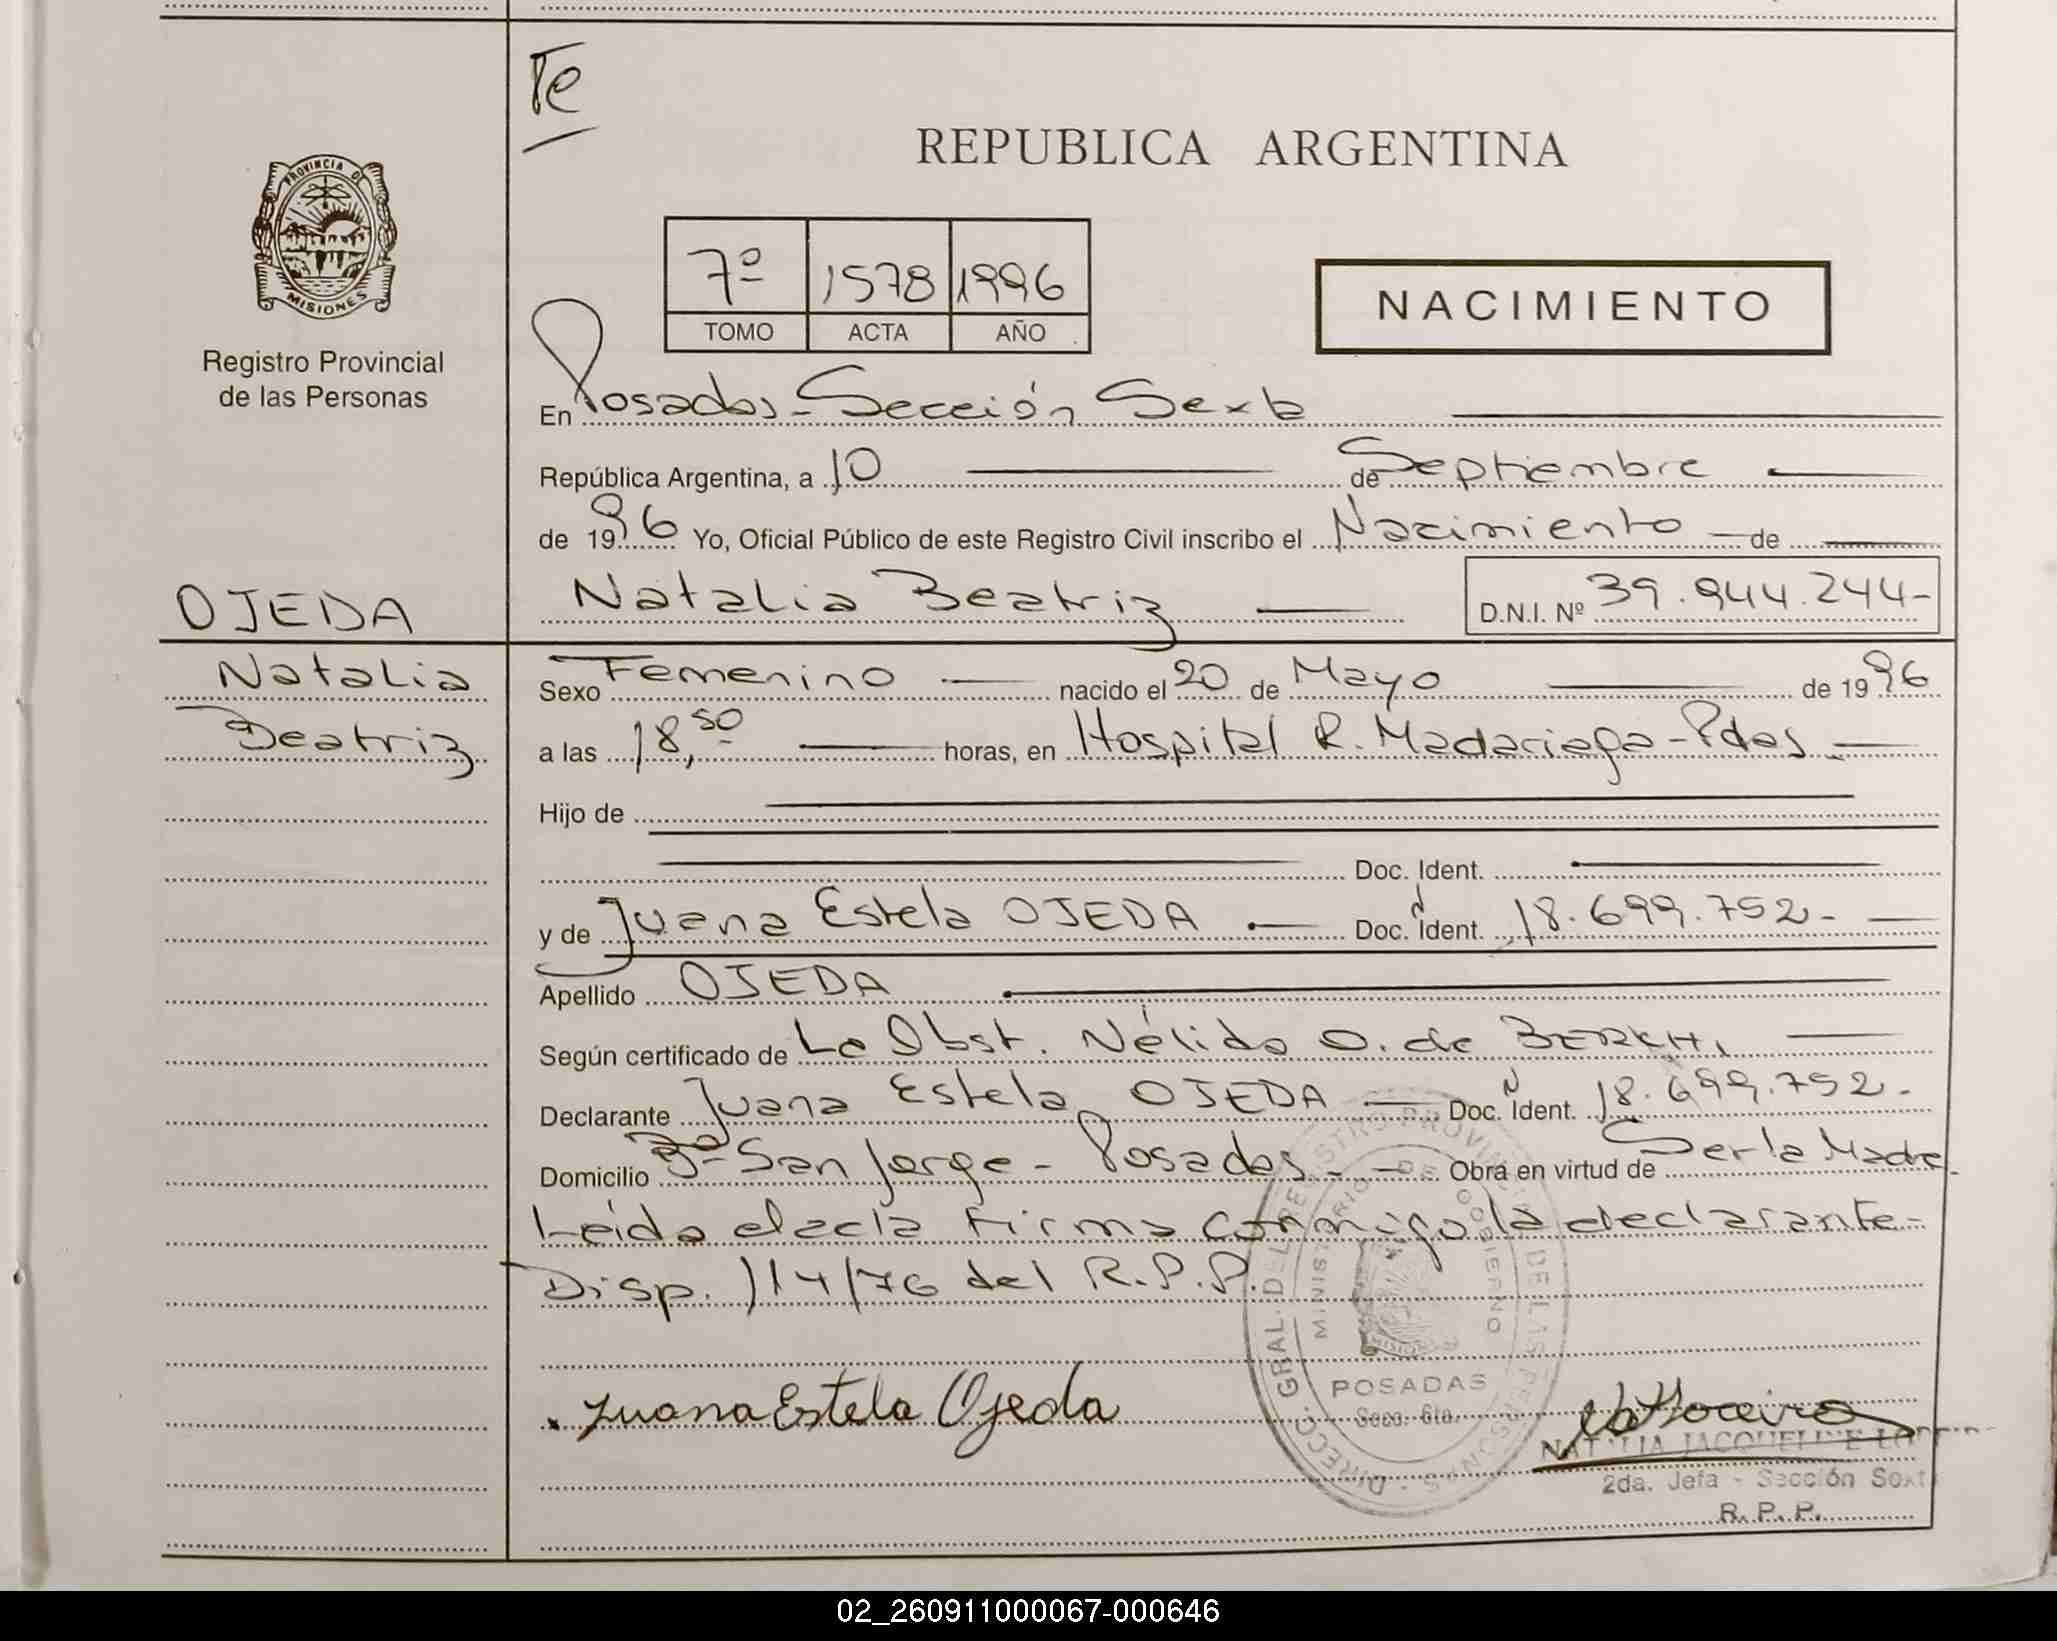 Te
PROVINCIA DE
MISIONES
Registro Provincial
de las Personas
REPUBLICA ARGENTINA
7º 1578 1996
TOMO ACTA AÑO
NACIMIENTO
En Posadas-Sección Sexta
República Argentina, a 10 de Septiembre
de 1996 Yo, Oficial Público de este Registro Civil inscribo el Nacimiento de
OJEDA
Natalia Beatriz D.N.I. Nº 39.944.244-
Natalia
Beatriz
Sexo Femenino nacido el 20 de Mayo de 1996
a las 18,50 horas, en Hospital R. Madariaga-Pdas
Hijo de
Doc. Ident.
y de Juana Estela OJEDA Doc. Ident. 18.699.752-
Apellido OJEDA
Según certificado de La Obst. Nélida O. de
Declarante Juana Estela OJEDA Doc. Ident. 18.699.752-
Domicilio Bº San Jorge - Posadas. Obra en virtud de Ser la Madre.
Leída el acta firma conmigo la declarante-
Disp. 114/76 del R.P.P.
Juana Estela Ojeda
DIRECC. GRAL. DEL REGISTRO PROVINCIAL DE LAS PERSONAS
MINISTERIO DE GOBIERNO
MISIONES
POSADAS
Secc. 6ta.
NATALIA JACQUELINE
2da. Jefa - Sección Sexta
R. P. P.
02_260911000067-000646